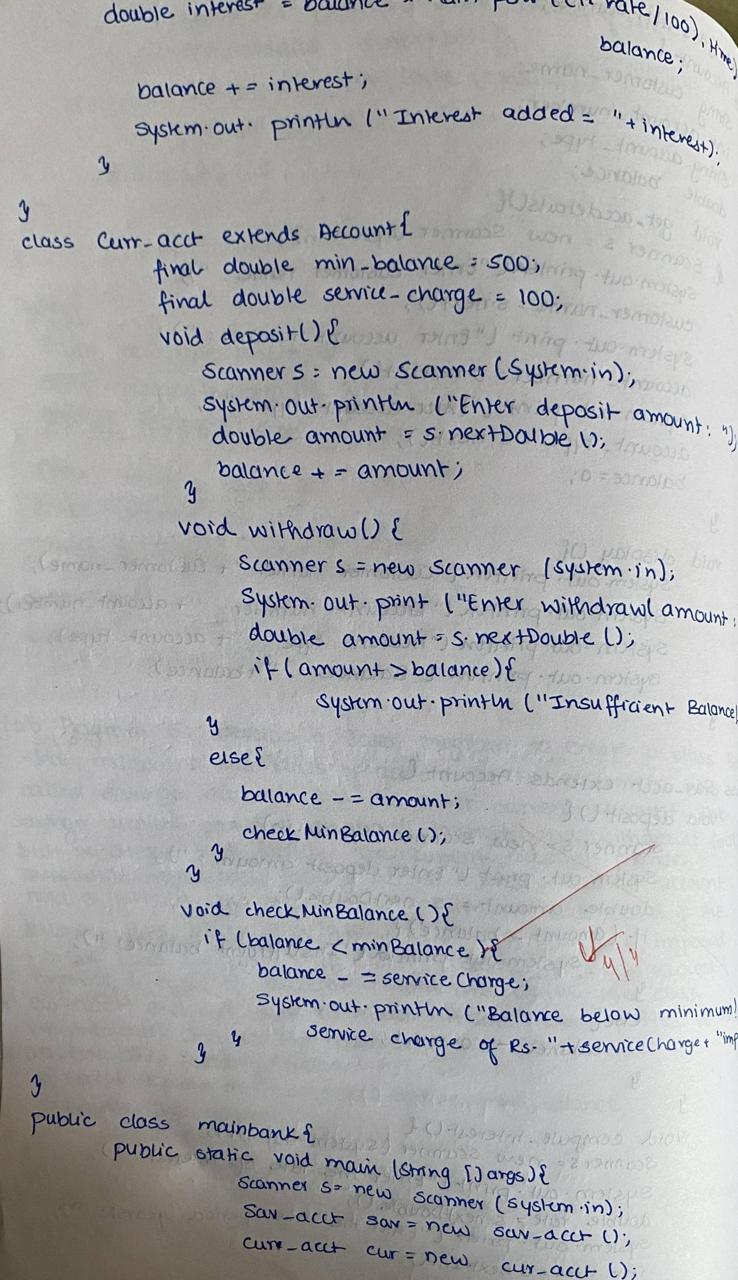 double interest = balance
rate/100), time)
balance;
balance += interest;
System.out.println ("Interest added = "+interest);
}
}
class Curr_acct extends Account{
final double min_balance = 500;
final double service_charge = 100;
void deposit() {
Scanner s = new Scanner (System.in);
System.out.println ("Enter deposit amount: ");
double amount = s.nextDouble ();
balance += amount;
}
void withdraw() {
Scanner s = new Scanner (System.in);
System.out.print ("Enter withdrawl amount:
double amount = s.nextDouble ();
if (amount > balance) {
System.out.println ("Insufficient Balance
}
else{
balance -= amount;
check MinBalance ();
}
}
void check MinBalance () {
if (balance < minBalance) {
balance -= service Charge;
System.out.println ("Balance below minimum!
service charge of Rs. "+serviceCharge+ "imp
}
}
}
public class mainbank {
public static void main (String [] args) {
Scanner s = new Scanner (System.in);
Sav_acct sav = new sav_acct ();
curr_acct cur = new cur_acct ();